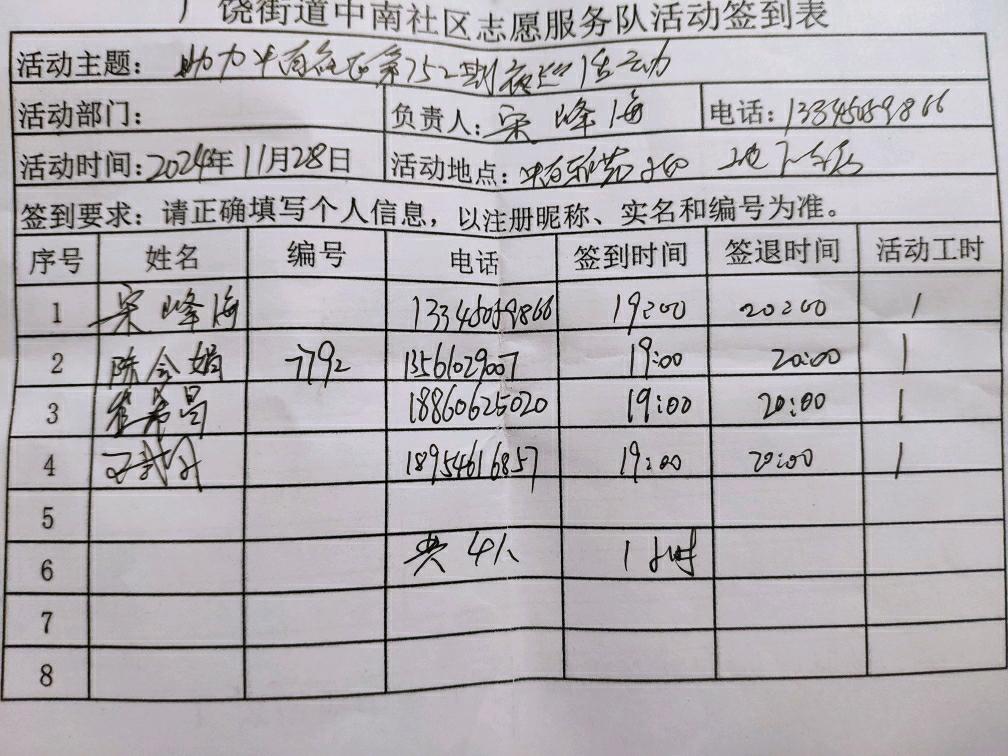 广饶街道中南社区志愿服务队活动签到表
活动主题: 助力中南社区第752期夜巡活动
活动部门: 负责人: 宋峰海 电话: 13345059866
活动时间: 2024年11月28日 活动地点: 地下车库
签到要求: 请正确填写个人信息，以注册昵称、实名和编号为准。
序号 姓名 编号 电话 签到时间 签退时间 活动工时
1 宋峰海 13345059866 19:00 20:00 1
2 陈会娟 7792 13561029007 19:00 20:00 1
3 18860625020 19:00 20:00 1
4 18954616857 19:00 20:00 1
5
6 共4人 1小时
7
8